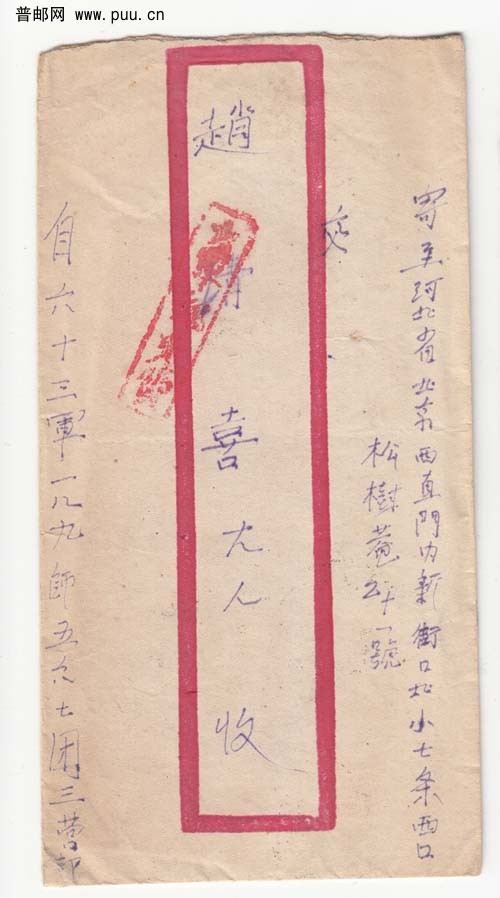 普邮网
www.puu.cn
寄至河北省北京西直門内新街口北小七条西口
松樹菴二十一號
交
趙
喜大人 收
自六十三軍一八九師五六七团三营部